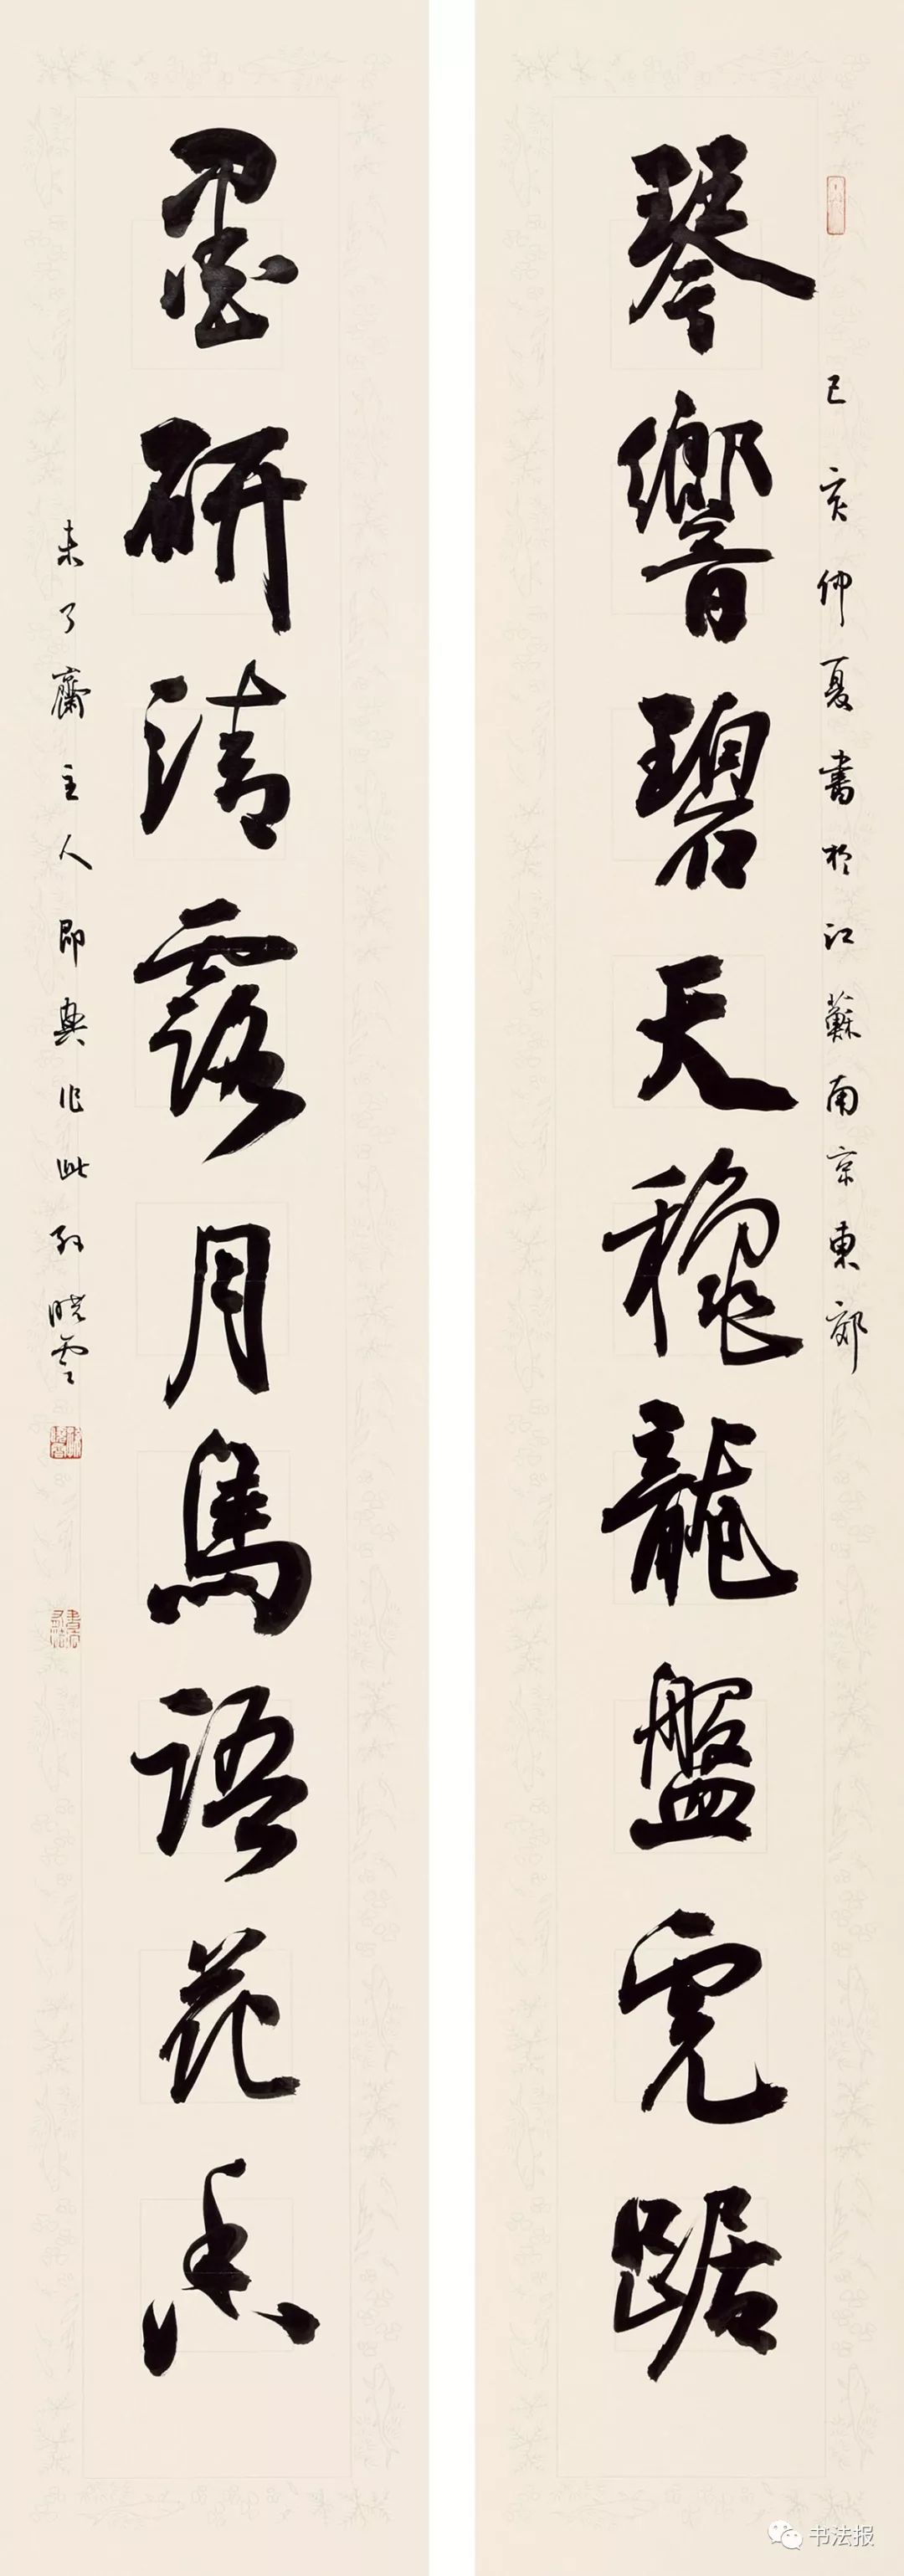 己亥仲夏書於江蘇南京東郊
琴響碧天穩龍盤虎踞
墨研清露月鳥語花香
未了齋主人即興作此孫曉雲
书法报